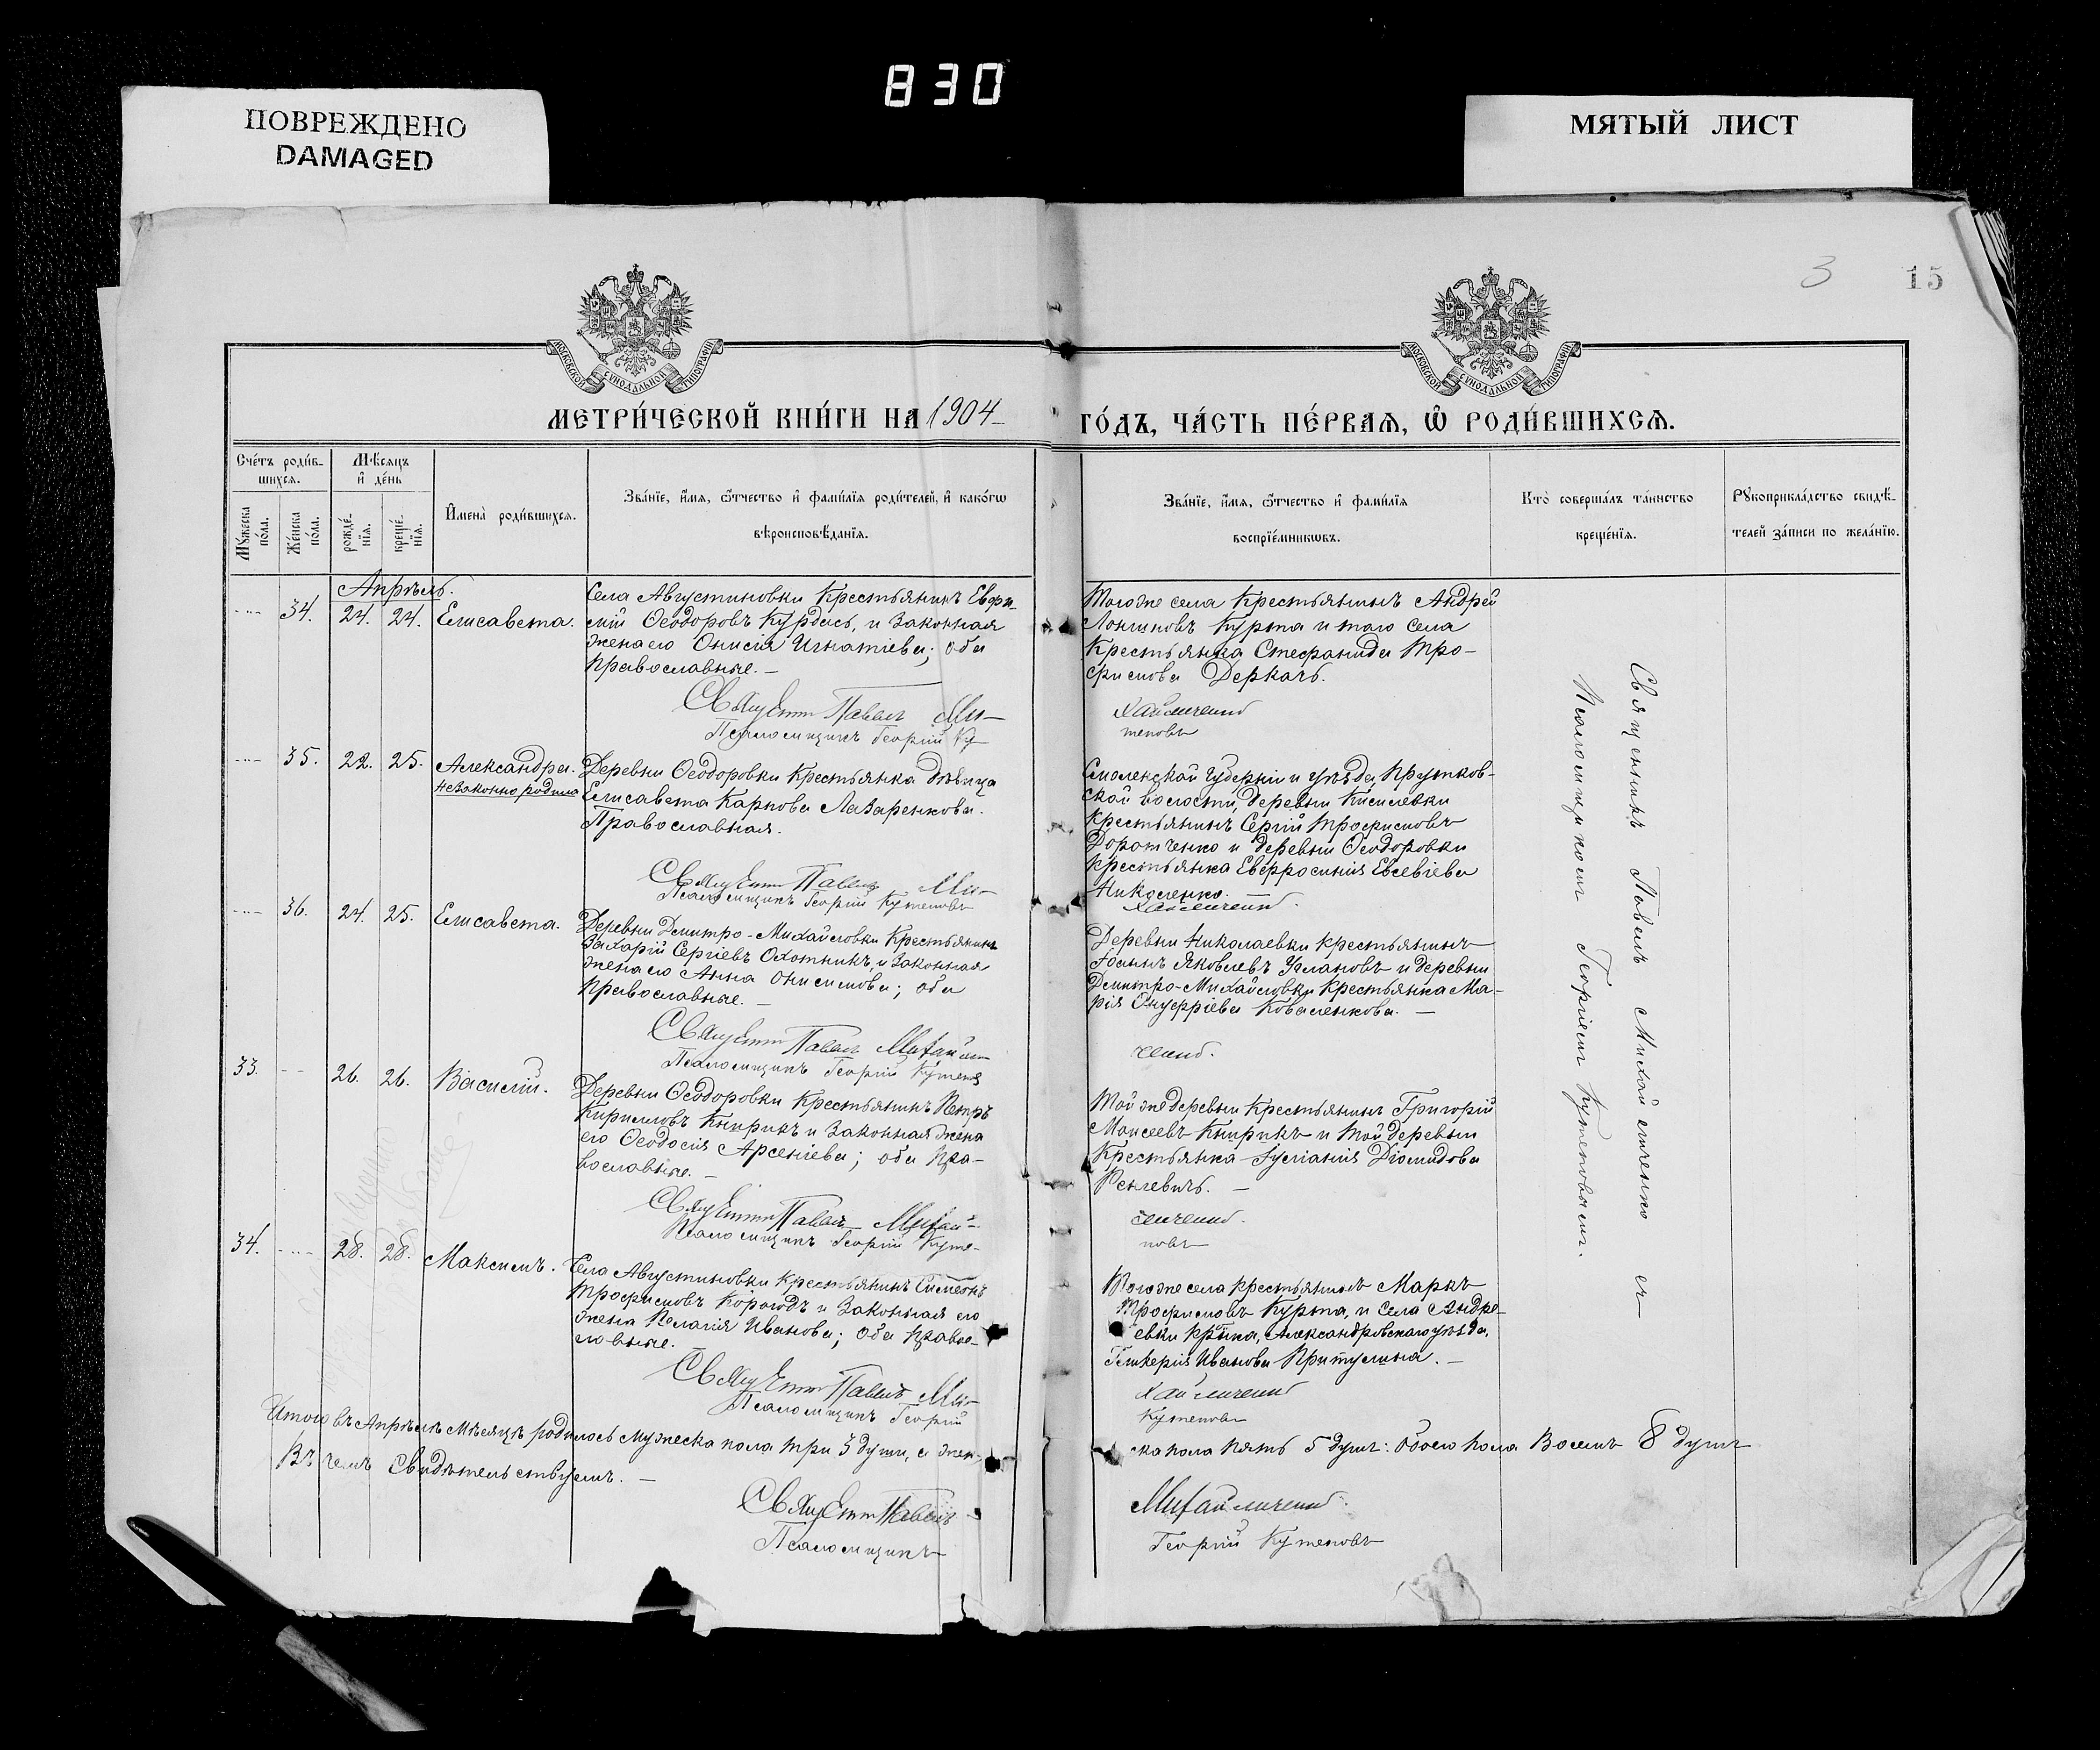 830
ПОВРЕЖДЕНО
DAMAGED
МЯТЫЙ ЛИСТ
3
15
МОСКОВСКОЙ СѴНОДАЛЬНОЙ ТИПОГРАФІИ
МОСКОВСКОЙ СѴНОДАЛЬНОЙ ТИПОГРАФІИ
МЕТРИ́ЧЕСКОЙ КНИ́ГИ НА 1904
ГО́ДЪ, ЧА́СТЬ ПЕ́РВАѦ, Ѿ РОДИ́ВШИХСѦ.
Сче́тъ роди́в-
шихсѧ.
Мꙋ́жеска по́ла.
Же́нска по́ла.
Мѣ́сѧцъ и҆ де́нь
рожде́нїѧ.
креще́нїѧ.
И҆мена̀ роди́вшихсѧ.
Зва́нїе, и҆́мѧ, ѻ҆́тчество и҆ фами́лїѧ роди́телей, и҆ како́гѡ
вѣроисповѣ́данїѧ.
Зва́нїе, и҆́мѧ, ѻ҆́тчество и҆ фами́лїѧ
воспрїе́мникѡвъ.
Кто̀ соверша́лъ та́инство
креще́нїѧ.
Рꙋкоприкла́дство свидѣ́-
телей за́писи по жела́нїю.
Апрѣль.
34. 24. 24. Елисавета.
Села Августиновки крестьянинъ Евфи-
мій Ѳеодоровъ Курдась, и законная
жена его Онисія Игнатіева; оба
православные. —
Священ Павелъ Ми-
Псаломщикъ Георгій Ку-
Тогоже села крестьянинъ Андрей
Лонгиновъ Курта и того села
крестьянка Стефанида Тро-
фимова Деркачъ.
хайличенко
теповъ
35. 22. 25. Александра.
незаконно родила
Деревни Ѳеодоровки крестьянка дѣвица
Елисавета Карпова Лазаренкова.
Православная.
Священ Павелъ Ми-
Псаломщикъ Георгій Кутеповъ
Смоленской губерніи и уѣзда, Прудков-
ской волости, деревни Киселевки
крестьянинъ Сергій Трофимовъ
Доротченко и деревни Ѳеодоровки
крестьянка Евфросинія Евсевіева
Николенко.
хайличенко.
36. 24. 25. Елисавета.
Деревни Дмитро-Михайловки крестьянинъ
Захарій Сергіевъ Охотникъ, и законная
жена его Анна Онисимова; оба
православные. —
Священ Павелъ Михайли-
Псаломщикъ Георгій Кутеповъ
Деревни Николаевки крестьянинъ
Іоаннъ Яковлевъ Улановъ и деревни
Дмитро-Михайловки крестьянка Ма-
рія Онуфріева Коваленкова. —
ченко.
33. 26. 26. Василій.
Деревни Ѳеодоровки крестьянинъ Петръ
Кирилловъ Кнырикъ и законная жена
его Ѳеодосія Арсеніева; оба пра-
вославные. —
Священ Павелъ Михай-
Псаломщикъ Георгій Куте-
Той же деревни крестьянинъ Григорій
Моисеевъ Кнырикъ и той деревни
крестьянка Іуліанія Діомидова
личенко.
повъ
34. 28. 28. Максимъ.
Села Августиновки крестьянинъ Симеонъ
Трофимовъ Корогодъ и законная его
жена Пелагія Иванова; оба право-
славные. —
Священ Павелъ Ми-
Псаломщикъ Георгій
Тогоже села крестьянинъ Маркъ
Трофимовъ Курта, и села Андре-
евки Александровскаго уѣзда,
Гликерія Иванова Притулина. —
хайличенко
Кутеповъ
Священникъ Павелъ Михайличенко съ
Псаломщикомъ Георгіемъ Кутеповымъ.
Итого въ Апрѣлѣ мѣсяцѣ родилось мужеска пола три 3 души, а жен-
ска пола пять 5 душъ: обоего пола восемь 8 душъ
Въ чемъ свидѣтельствуемъ. —
Священ Павелъ
Михайличенко.
Псаломщикъ
Георгій Кутеповъ